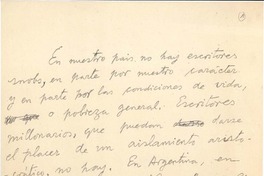 En nuestro país no hay escritores
snobs, en parte por nuestro carácter
y en parte por las condiciones de vida,
o pobreza general. Escritores
millonarios, que puedan darse
el placer de un aislamiento aristo-
crático, no hay. En Argentina, en